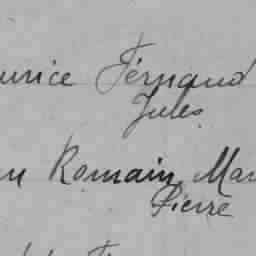 urice Fernand
Jules
n Romain Mar
Pierre